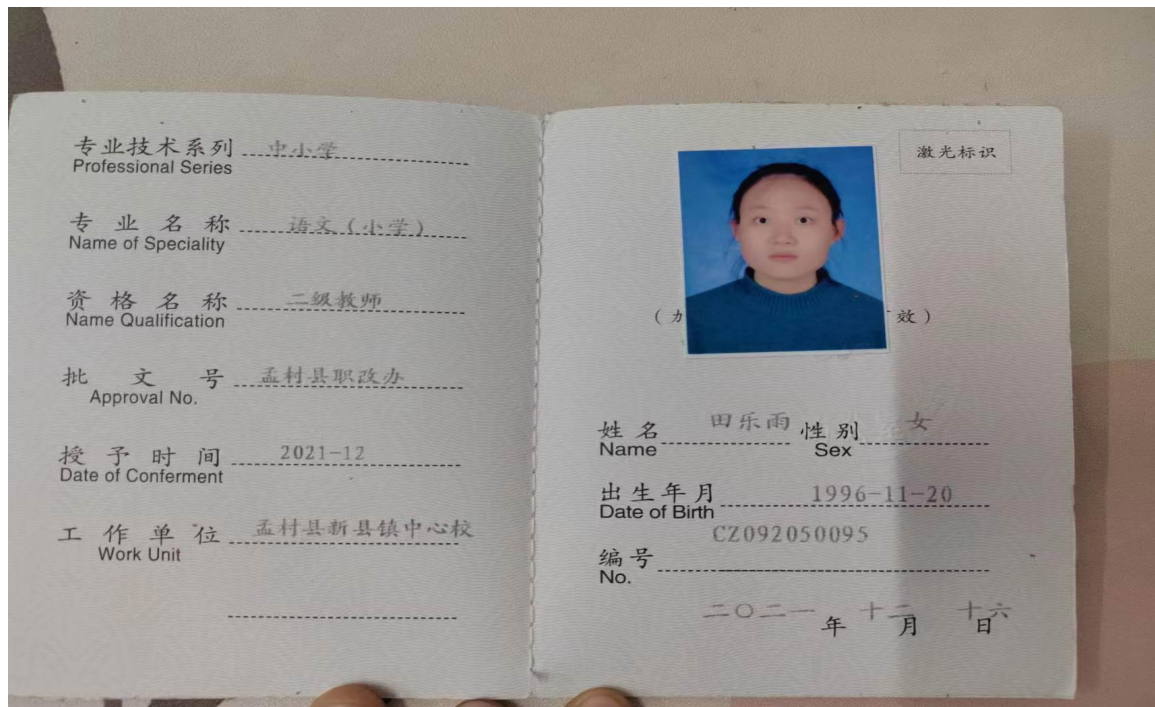 专业技术系列 中小学
Professional Series
专业名称 语文（小学）
Name of Speciality
资格名称 二级教师
Name Qualification
批文号 孟村县职改办
Approval No.
授予时间 2021-12
Date of Conferment
工作单位 孟村县新县镇中心校
Work Unit
激光标识
（ 效）
姓名 田乐雨 性别 女
Name Sex
出生年月 1996-11-20
Date of Birth
CZ092050095
编号
No.
二〇二一年十二月十六日